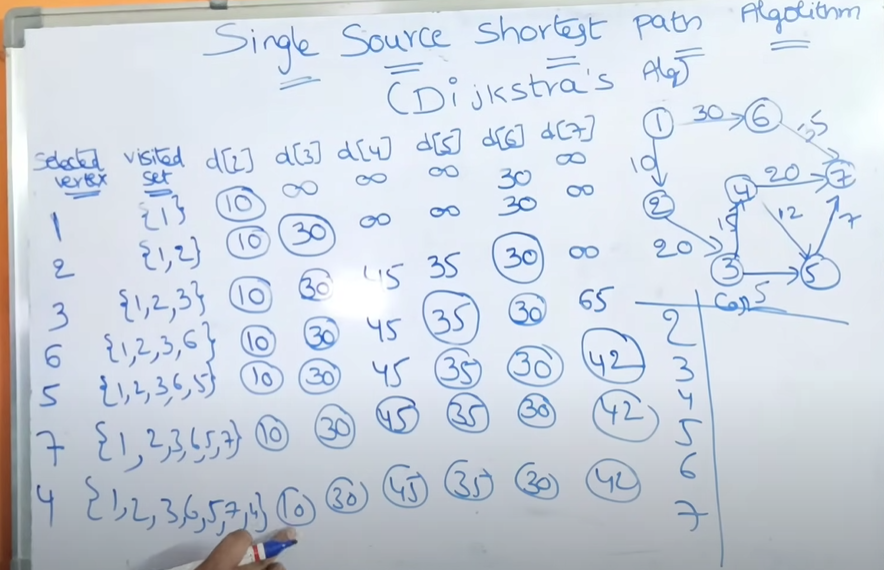 Single Source Shortest path Algolithm
(Dijkstra's Alg)
Selected vertex visited set d[2] d[3] d[4] d[5] d[6] d[7]
1 {1} 10 ∞ ∞ ∞ 30 ∞
2 {1,2} 10 30 ∞ ∞ 30 ∞
3 {1,2,3} 10 30 45 35 30 ∞
6 {1,2,3,6} 10 30 45 35 30 65
5 {1,2,3,6,5} 10 30 45 35 30 42
7 {1,2,3,6,5,7} 10 30 45 35 30 42
4 {1,2,3,6,5,7,4} 10 30 45 35 30 42
1 30 6
10 35
2 4 20 7
20 15 12 7
3 5 5
2
3
4
5
6
7